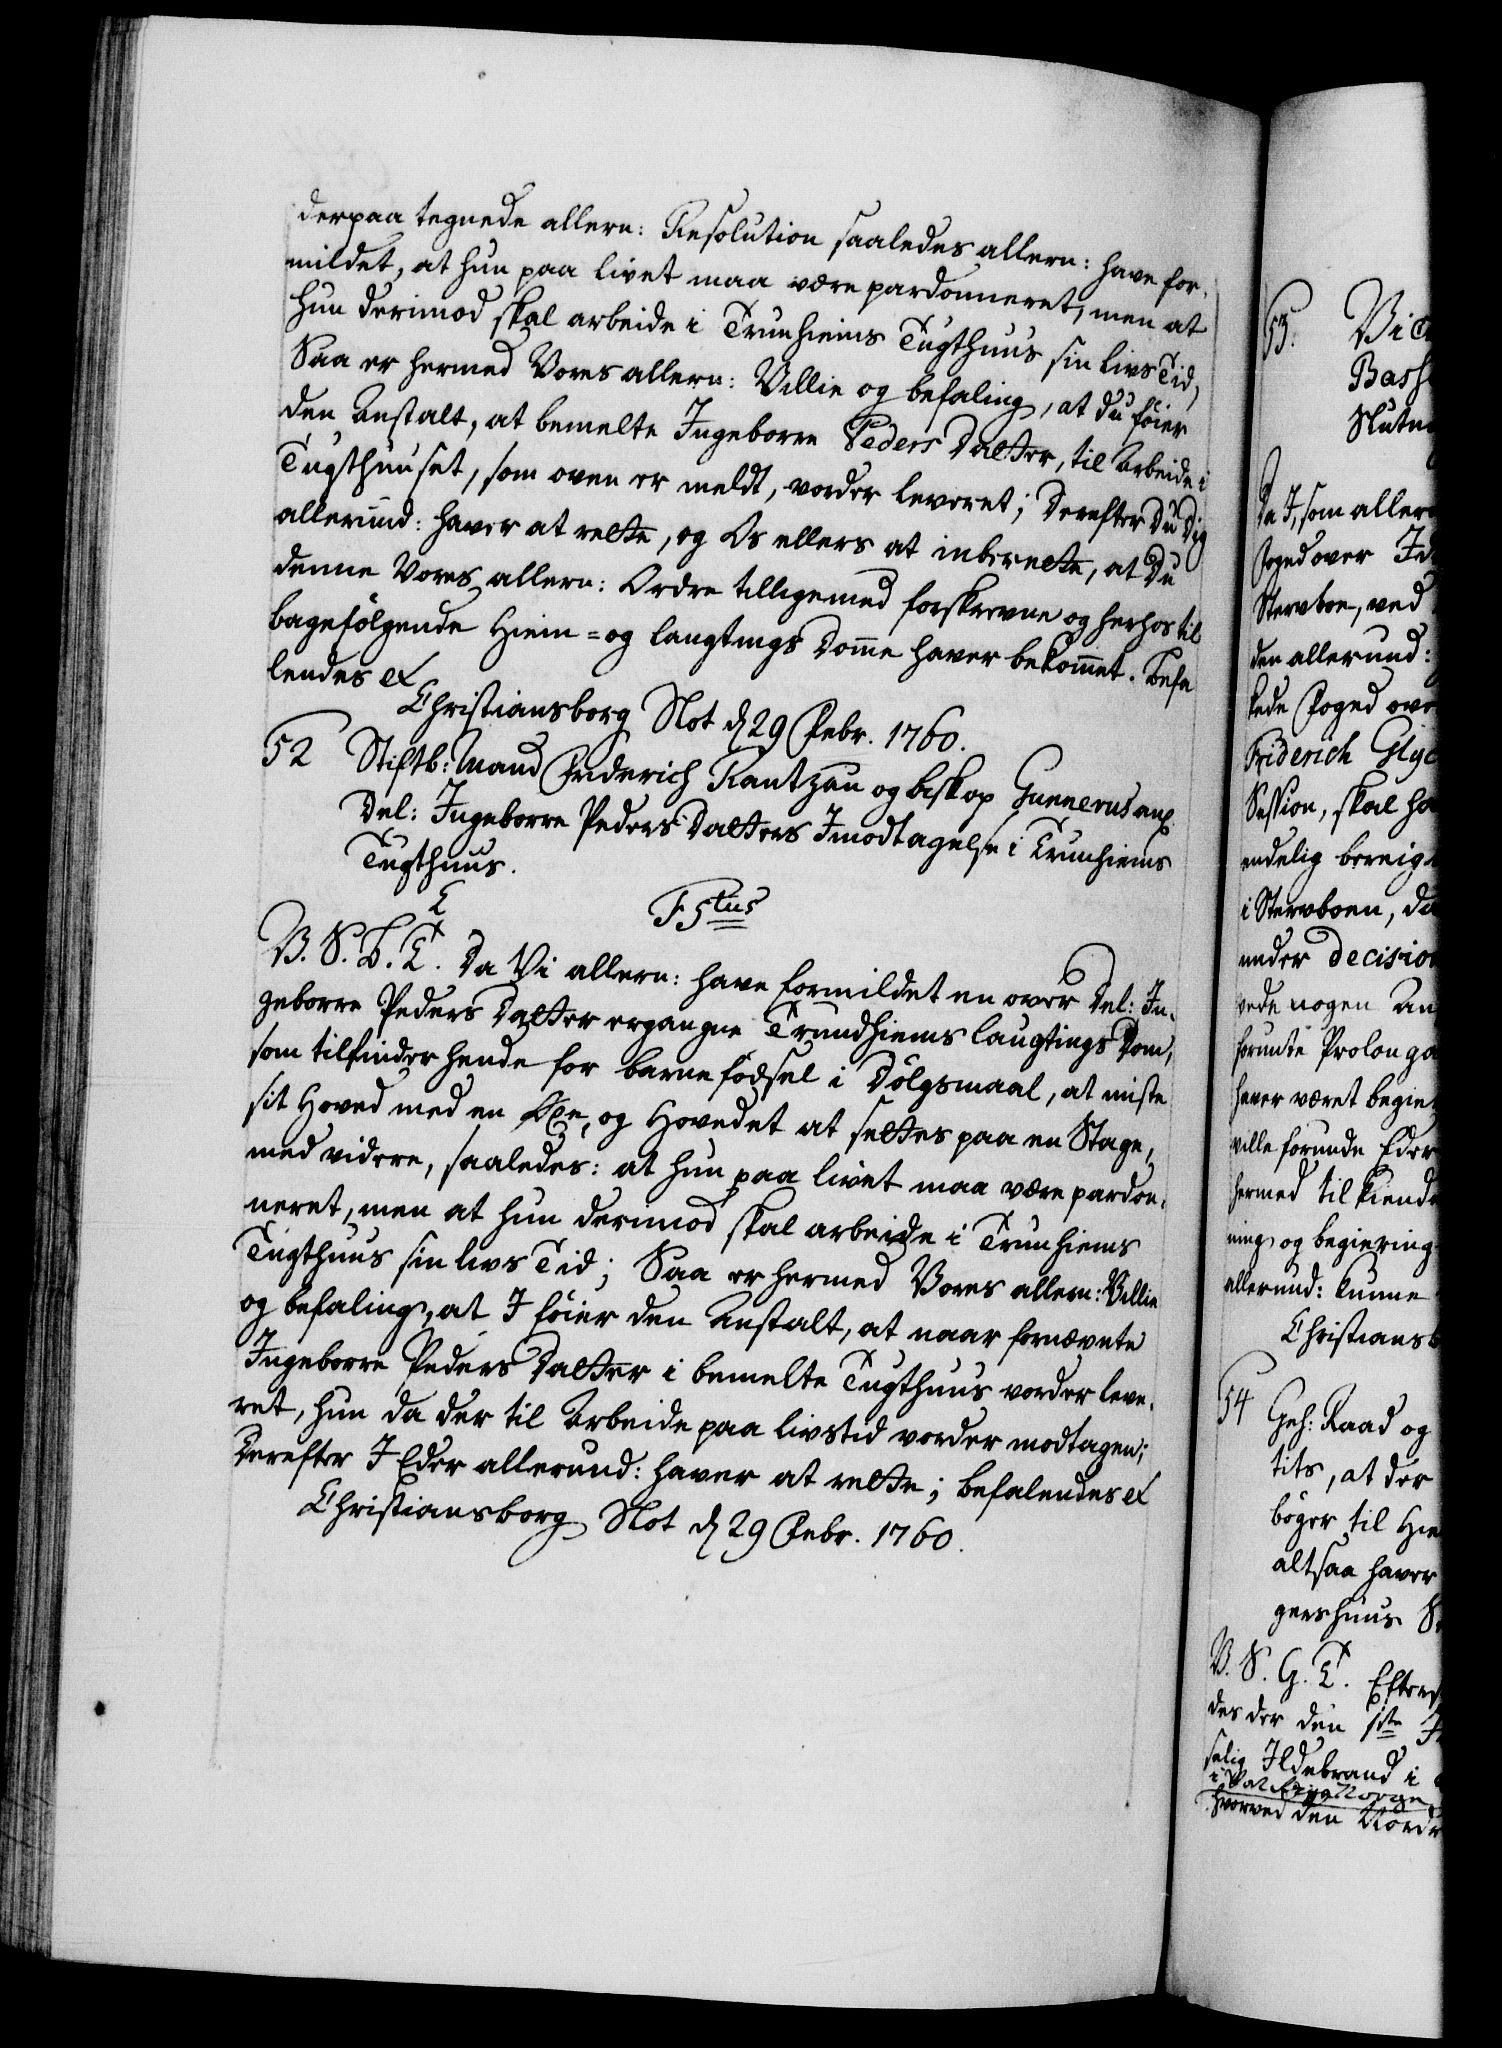 derpaa tegnede allern: Resolution saaledes allern: have for-
mildet, at hun paa livet maa være pardonneret, men at
hun derimod skal arbeide i Trunhiems Tugthuus sin livs Tid,
Saa er hermed Vores allern: Villie og befaling, at du föier
den Anstalt, at bemelte Ingeborre Peders Datter, til Arbeide i
Tugthuuset, som oven er meldt, vorder leveret; Derefter Du Dig
allerund: haver at rette, og Os ellers at inberette, at Du
denne Vores allern: Ordre tilligemed forskrevne og herhos til
bagefölgende Hiem= og laugtings Domme haver bekommet. Befa
lendes etc
Christiansborg Slot d 29 Febr. 1760.
52 Stiftb: Mand Friderich Rantzau og biskop Gunnerus ang
Del: Ingeborre Peders Datters Imodtagelse i Trunhiems
Tugthuus.
F 5tus
V. S. G. T. Da Vi allern: have formildet en over Del: In-
geborre Peders Datter ergangne Trundhiems laugtings Dom,
som tilfinder hende for barnefödsel i Dölgsmaal, at miste
sit Hoved med en Öxe, og Hovedet at settes paa en Stage,
med videre, saaledes: at hun paa livet maa være pardon-
neret, men at hun derimod skal arbeide i Trunhiems
Tugthuus sin livs Tid; Saa er hermed Vores allern: Villie
og befaling, at I föier den Anstalt, at naar fornævnte
Ingeborre Peders Datter i bemelte Tugthuus vorder leve-
ret, hun da der til Arbeide paa livstid vorder modtagen;
Derefter I Eder allerund: haver at rette; befalendes etc
Christiansborg Slot d 29 Febr. 1760.
53.
Da I, som aller
foged over
Stervboe, ved
den allerund:
foged
Friderich
Session, skal
endelig
i Stervboen, da
under decision
vede nogen
forunte
haver været begie
ville forunde Eder
hermed tilkiende
ning og begiering
allerund: kunne
Christiansb
54 Geh: Raad og
tits, at der
böger til
altsaa haver
gershuus
V. S. G. T. Efter
des der den 1ste
salig Ildebrand i
hvorved den